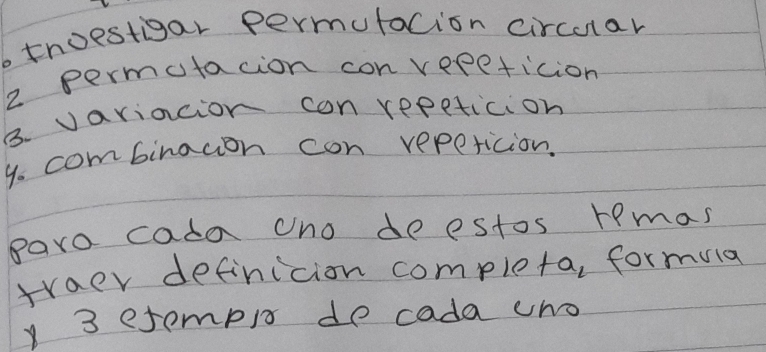 . Investigar permutacion circular
2 permutacion con repeticion
3. variacion con repeticion
4. combinacion con repeticion.
para cada uno de estos temas
traer definicion completa, formula
y 3 ejemplo de cada uno